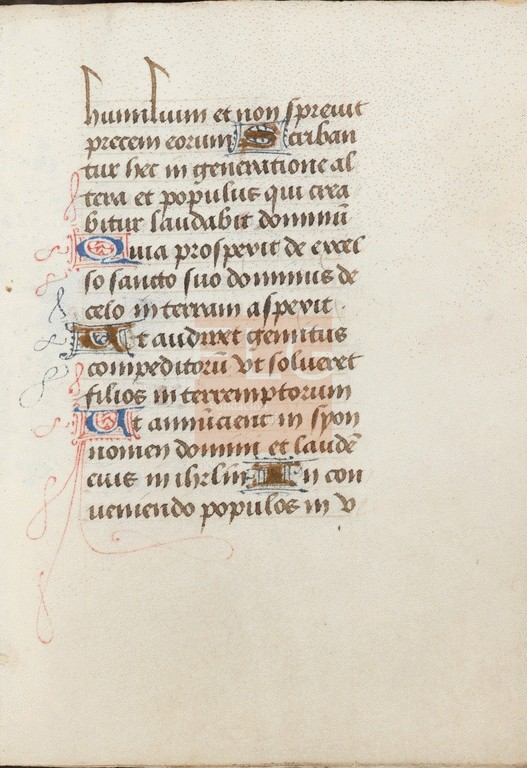 humilium et non sprevit
precem eorum Scriban
tur hec in generatione al
tera et populus qui crea
bitur laudabit dominū
Quia prospexit de excel
so sancto suo dominus de
celo in terram aspexit
Et audiret gemitus
compeditorū vt solveret
filios interremptorum
Et annūcient in syon
nomen domini et laudē
eius in ihrlm In con
ueniendo populos in v